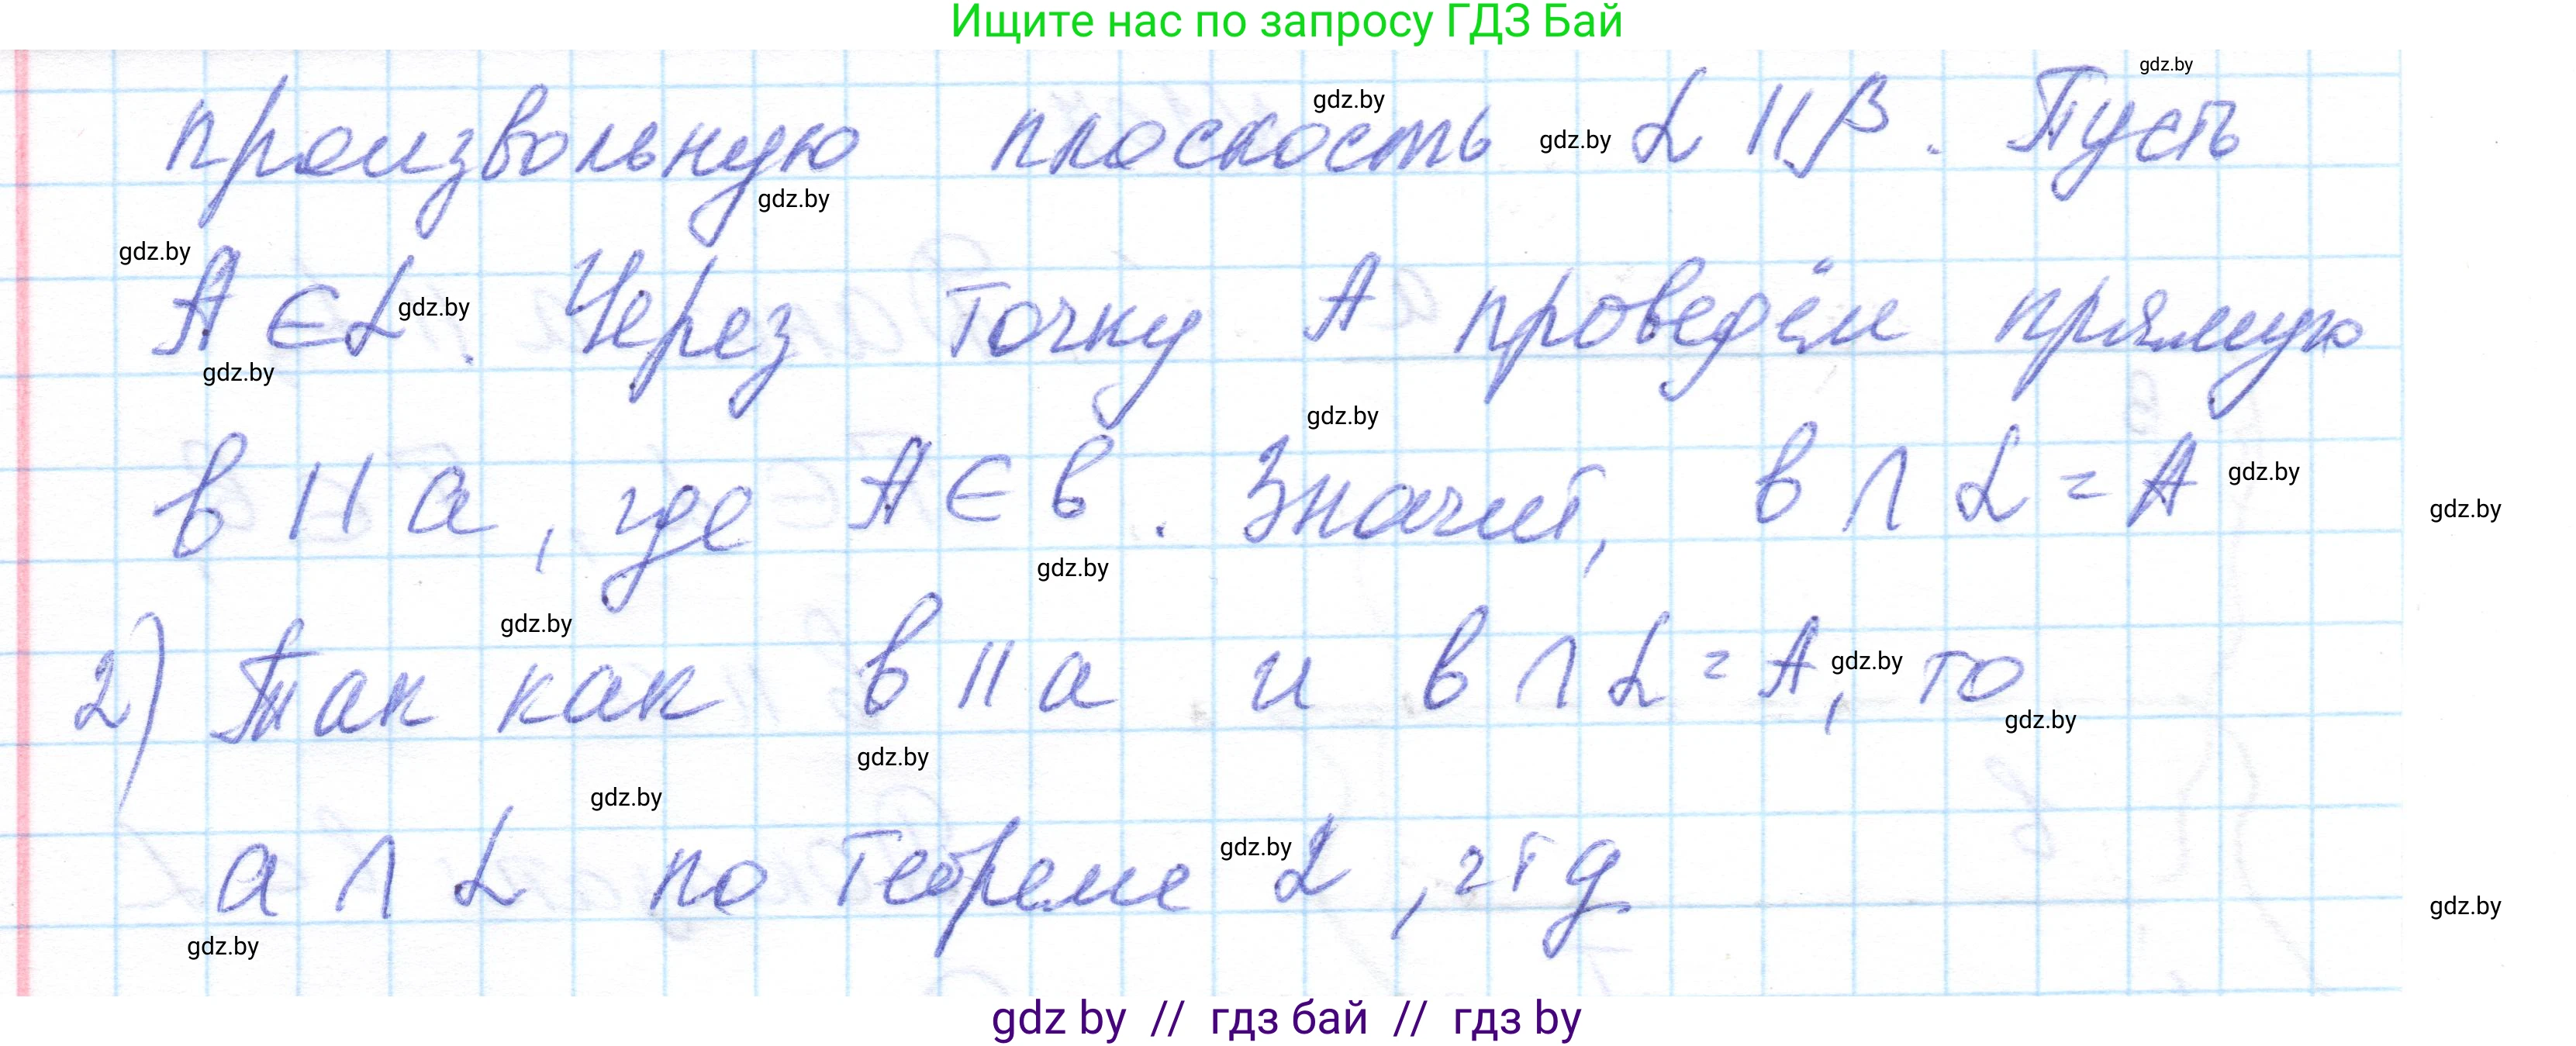 Ищите нас по запросу ГДЗ Бай
gdz.by
произвольную плоскость α || β. Пусть
gdz.by
gdz.by
gdz.by
gdz.by
A ∈ α. Через точку A проведём прямую
gdz.by
gdz.by
gdz.by
в || a, где A ∈ в. Значит, в ∩ α = A
gdz.by
gdz.by
gdz.by
gdz.by
2) Так как в || a и в ∩ α = A, то
gdz.by
gdz.by
gdz.by
gdz.by
a ∩ α по теореме 2, чтд
gdz.by
gdz.by
gdz.by
gdz by // гдз бай // гдз by